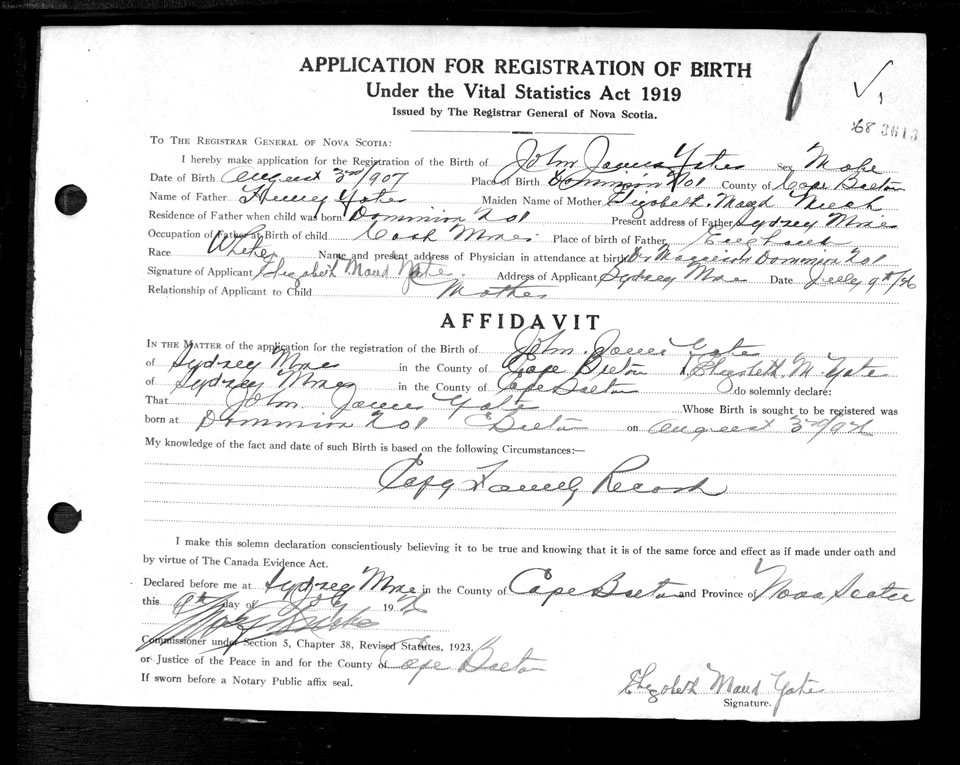 APPLICATION FOR REGISTRATION OF BIRTH
Under the Vital Statistics Act 1919
Issued by The Registrar General of Nova Scotia.
3613
TO THE REGISTRAR GENERAL OF NOVA SCOTIA:
I hereby make application for the Registration of the Birth of John James Yates Sex Male
Date of Birth August 3rd 1907 Place of Birth Dominion No1 County of Cape Breton
Name of Father Henry Yates Maiden Name of Mother Elizabeth Maud
Residence of Father when child was born Dominion No1 Present address of Father Sydney Mines
Occupation of Father at Birth of child Coal Miner Place of birth of Father England
Race White Name and present address of Physician in attendance at birth Dr Dominion No1
Signature of Applicant Elizabeth Maud Yate. Address of Applicant Sydney Mine Date July 9th/26
Relationship of Applicant to Child Mother
AFFIDAVIT
IN THE MATTER of the application for the registration of the Birth of John James Yate
of Sydney Mines in the County of Cape Breton I Elizabeth. M. Yate
of Sydney Mines in the County of Cape Breton do solemnly declare:
That John James Yate Whose Birth is sought to be registered was
born at Dominion No1 C Breton on August 3rd
My knowledge of the fact and date of such Birth is based on the following Circumstances:—
Copy Family Record
I make this solemn declaration conscientiously believing it to be true and knowing that it is of the same force and effect as if made under oath and
by virtue of The Canada Evidence Act.
Declared before me at Sydney Mine in the County of Cape Breton and Province of Nova Scotia
this 9th day of July 1926
Commissioner under Section 5, Chapter 38, Revised Statutes, 1923.
or Justice of the Peace in and for the County of Cape Breton
If sworn before a Notary Public affix seal.
Elizabeth Maud Yate
Signature.